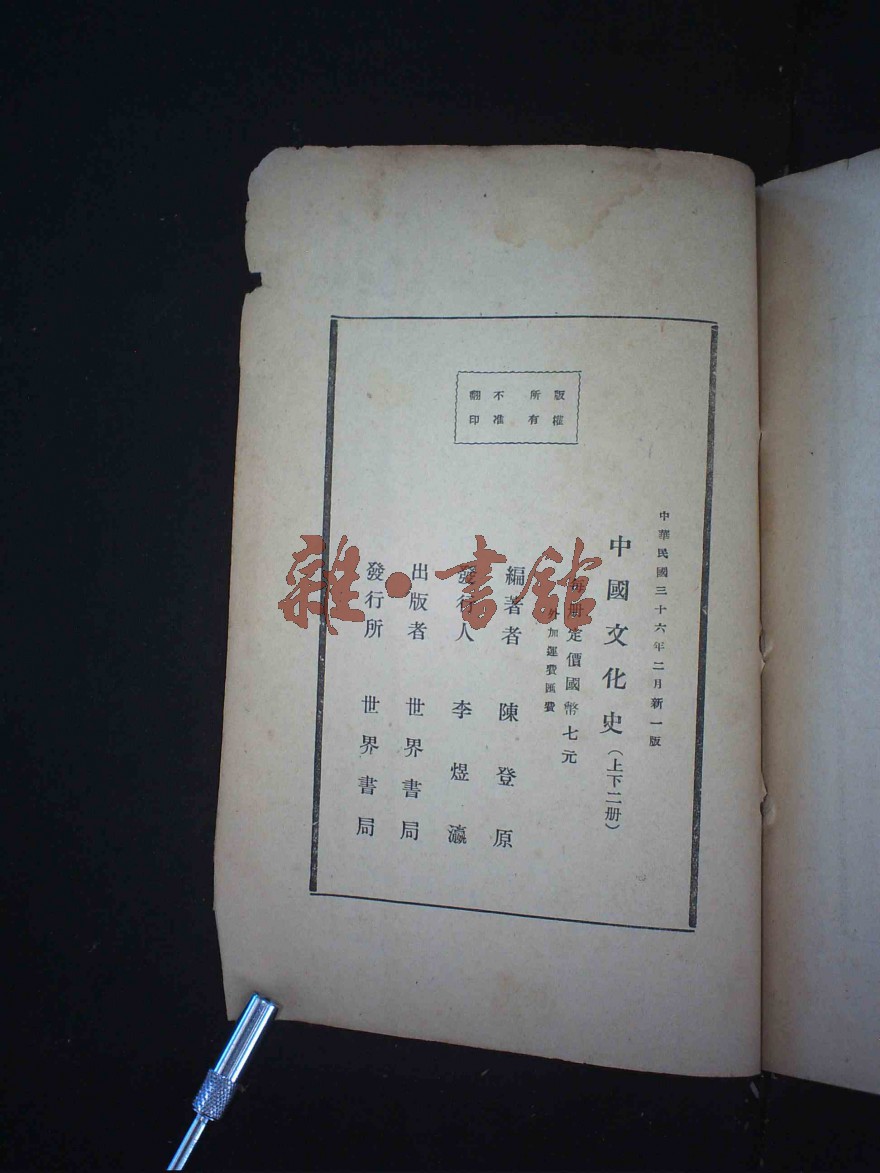 版權所有
不准翻印
中華民國三十六年二月新一版
中國文化史（上下二册）
每册定價國幣七元
外加運費匯費
編著者 陳登原
發行人 李煜瀛
出版者 世界書局
發行所 世界書局
雜·書館